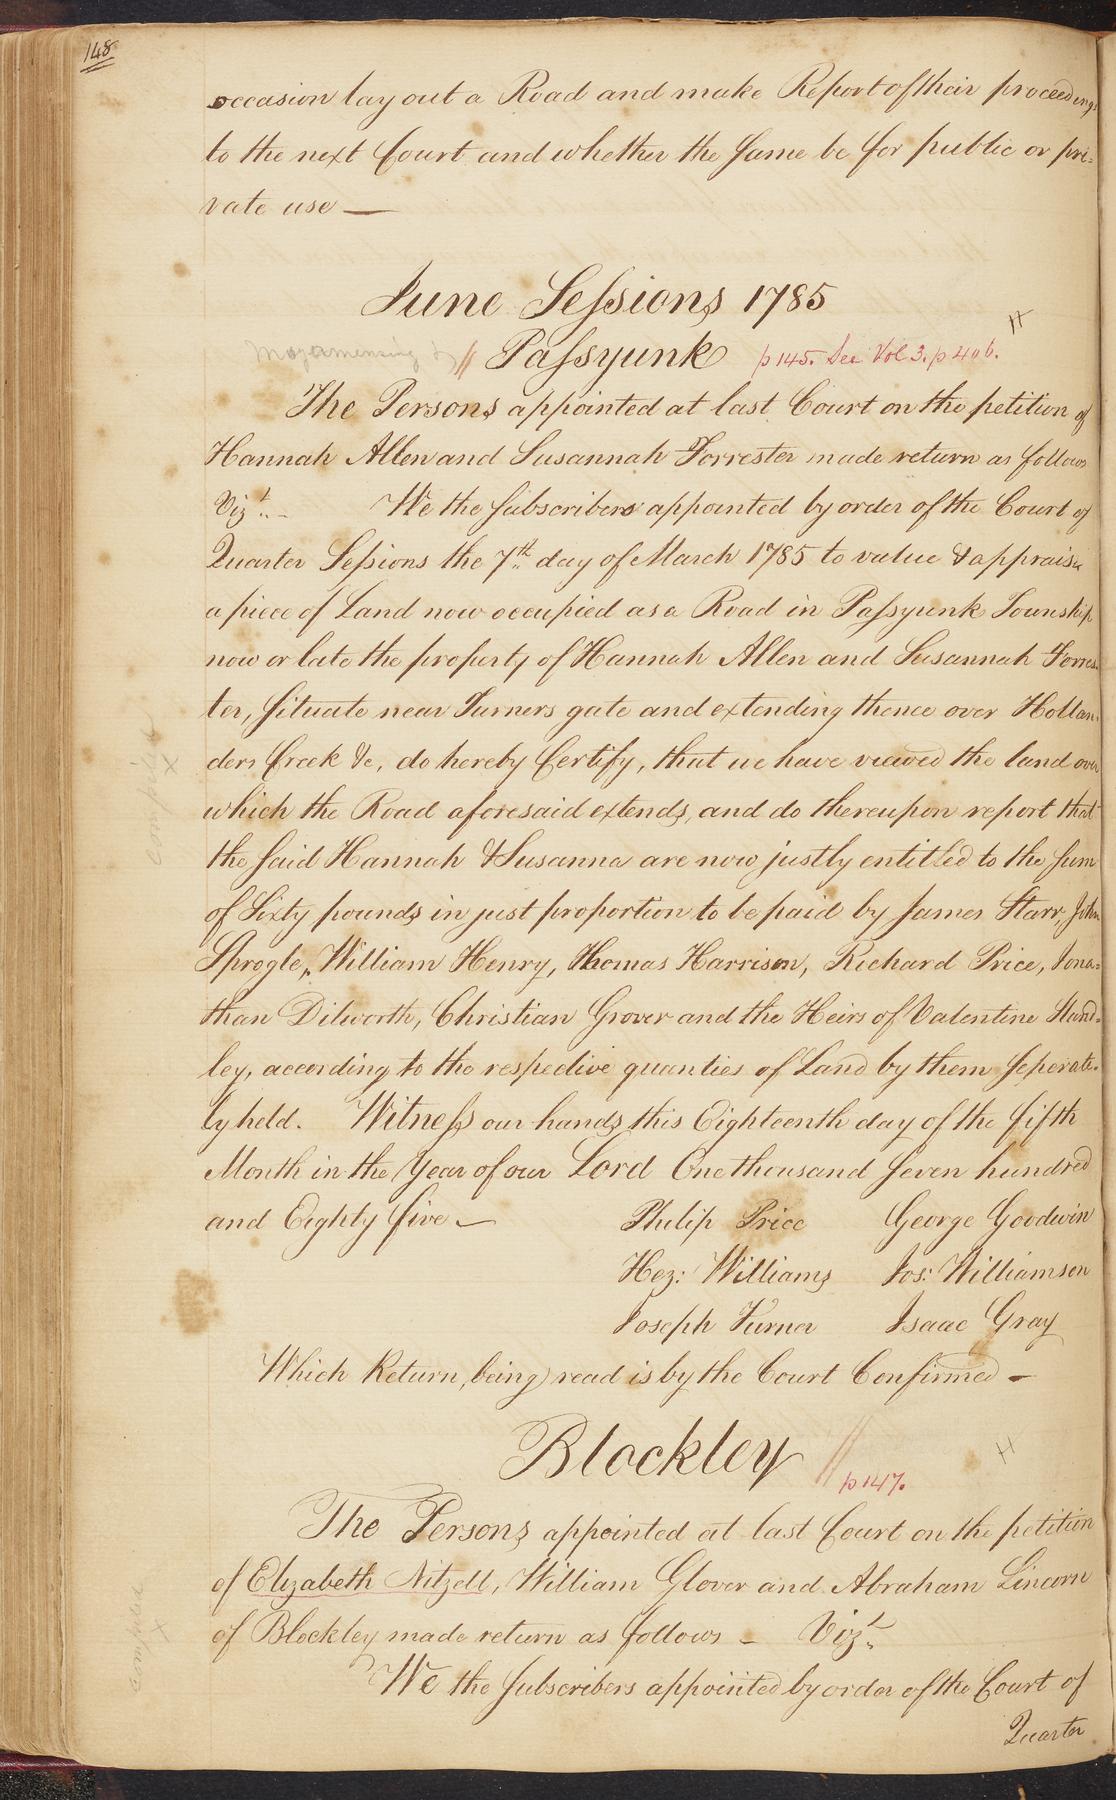 148
occasion lay out a Road and make Report of their proceedings
to the next Court and whether the same be for public or pri=
vate use —
June Sessions 1785
Moyamensing & // Passyunk p 145. See Vol 3. p 406. H
The Persons appointed at last Court on the petition of
Hannah Allen and Susannah Forrester made return as follows
Vizt.. — We the subscribers appointed by order of the Court of
Quarter Sessions the 7th day of March 1785 to value & appraise
a piece of Land now occupied as a Road in Passyunk Township
now or late the property of Hannah Allen and Susannah Forres-
ter, situate near Turners gate and extending thence over Hollan-
ders Creek &c, do hereby Certify, that we have viewed the land over
which the Road aforesaid extends, and do thereupon report that
the said Hannah & Susanna are now justly entitled to the sum
of Sixty pounds in just proportion to be paid by James Starr, John
Sprogle, William Henry, Thomas Harrison, Richard Price, Jona=
than Dilworth, Christian Grover and the Heirs of Valentine Stand=
ley, according to the respective quanties of Land by them seperate-
ly held. Witness our hands this Eighteenth day of the fifth
Month in the Year of our Lord One thousand seven hundred
and Eighty five —
Philip Price George Goodwin
Hez: Williams Jos: Williamson
Joseph Turner Isaac Gray
Which Return, being read is by the Court Confirmed —
Blockley // p 147. H
The Persons appointed at last Court on the petition
of Elizabeth Nitzell, William Glover and Abraham Lincorn
of Blockley made return as follows — Vizt..
We the subscribers appointed by order of the Court of
Quarter
compared
x
compared
x